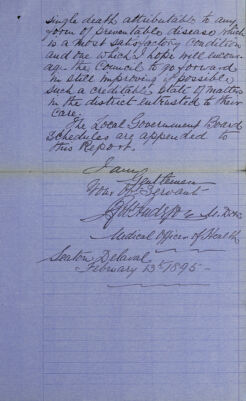 single death attributable to any
form of preventable disease which
is a most satisfactory condition
and one which I hope will encour-
age the Council to go forward
in still improving if possible
such a creditable state of matters
in the district entrusted to their
care.
The Local Government Board
Schedules are appended to
this Report.
I am,
Gentlemen
Your Obt Servant
Medical Officer of Health
Seaton Delaval
February 13th 1895 -